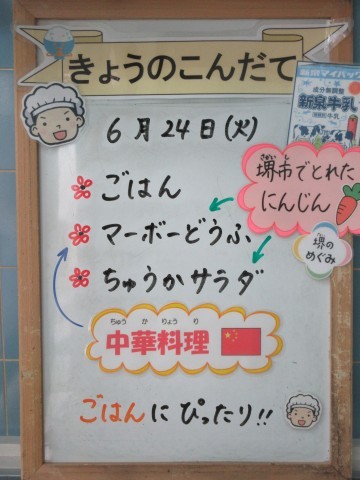 きょうのこんだて
6月24日(火)
ごはん
マーボーどうふ
ちゅうかサラダ
新泉牛乳
成分無調整
堺市でとれた
にんじん
堺の
めぐみ
ちゅう か りょう り
中華料理
ごはんにぴったり!!